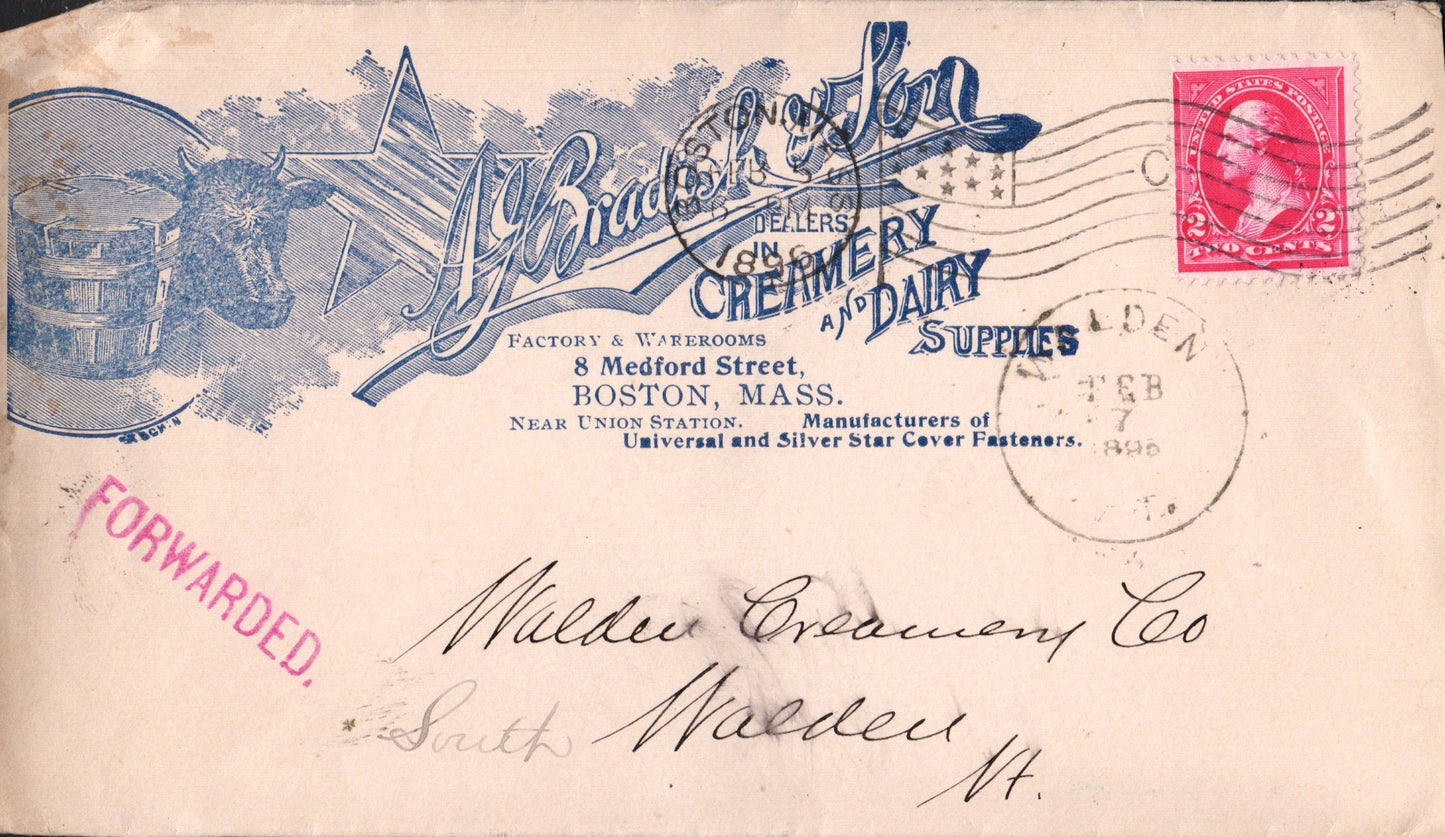 A G Bradish & Son
DEALERS
IN
CREAMERY
AND DAIRY
SUPPLIES
FACTORY & WAREROOMS
8 Medford Street,
BOSTON, MASS.
NEAR UNION STATION. Manufacturers of
Universal and Silver Star Cover Fasteners.
BOSTON, MASS
FEB 5
PM
1896
UNITED STATES POSTAGE
2 2
TWO CENTS
WALDEN
FEB
7
1896
VT.
FORWARDED.
Walden Creamery Co
South Walden
Vt.